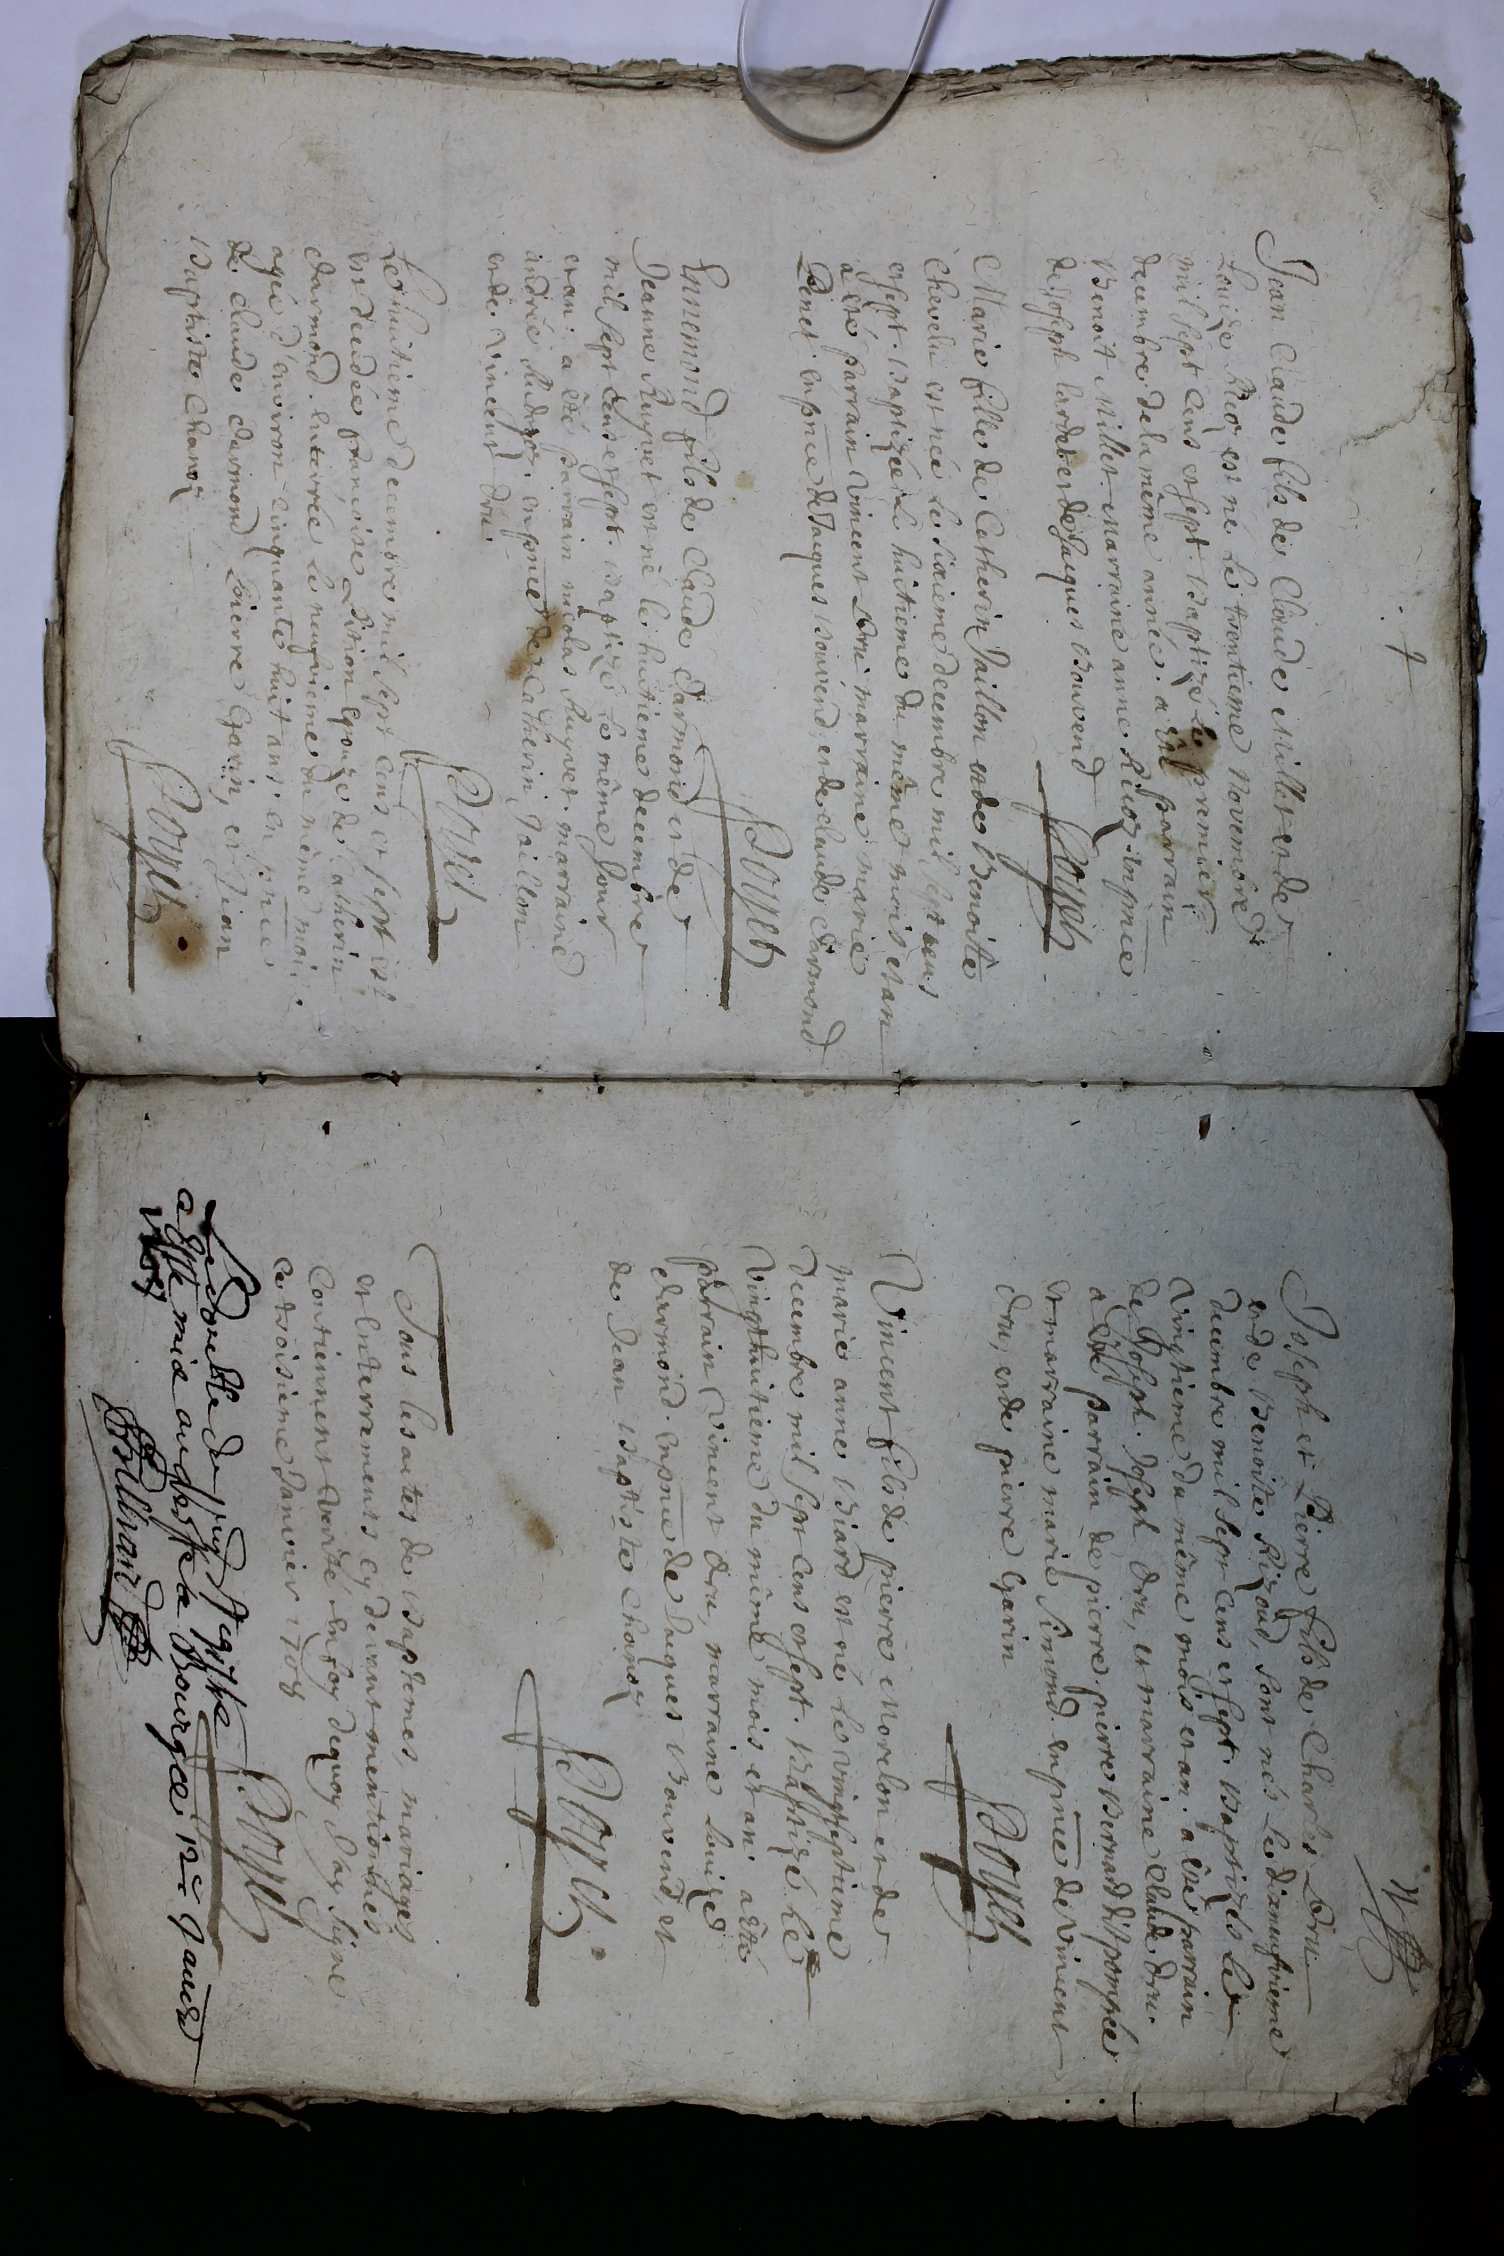 Jean Claude fils de Claude Millet et de
Louise est né le trentieme Novembre
mil sept cens et sept Baptizé le premier
decembre de la même année. a été parrain
Benoit Millet marraine anne en pnce
de Joseph et de Jaques Bouvend
Marie fille de Catherin Jaillon et de Benoite
est née le sixieme decembre mil sept cens
et sept. Baptizée le huitieme du même mois et an
a été parrain Vincent Dru marraine marie
Penet en pnce de Jaques Bouvend, et de claude Darmond
Ennemond fils de Claude Darmond et de
Jeanne Ruyvet est né le huitieme decembre
mil sept cens et sept. Baptizé le même Jour
et an: a été parrain nicolas Ruyvet. marraine
andrée en pnce de Catherin Jaillon
et de Vincent Dru.
Le huitieme decembre mil sept cens et sept est
decedée françoise Epouze de Catherin
Darmond. Enterrée le neufvieme du même mois.
agée d'environ cinquante huit ans: en pnce
de claude Darmond Pierre Garin, et Jean
Baptiste
Joseph et Pierre fils de Charles Dru
et de Benoite sont nés le dixneufvieme
decembre mil sept cens et sept. Baptizés le
vingtieme du même mois et an. a été parrain
de Joseph. Joseph Dru, et marraine Claude dru.
a été parrain de pierre pierre Bernard dit pompée
et marraine marie Simond. en pnce de Vincent
dru, et de pierre Garin
Vincent fils de pierre Morelon et de
marie anne Biard est né le vingtseptieme
decembre mil sept cens et sept. Baptizé le
vingthuitieme du même mois et an: a été
parrain Vincent dru, marraine Louize
Darmond. en pnce de Jaques Bouvend, et
de Jean Baptiste
Tous les actes de Baptemes, mariages
et Enterrements cy devant mentionnés
Contiennent verité. en foy dequoy J'ay signé
ce troisieme Janvier 1708
a esté mis au greffe de Bourg ce 12e Janvr